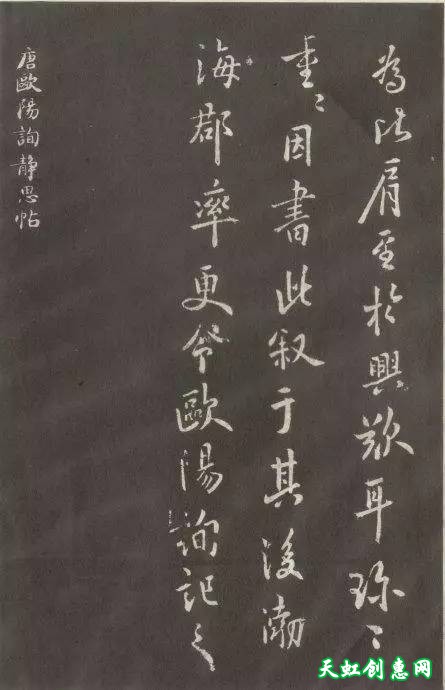 為比肩至於興歎耳珍〻
重〻因書此叙于其後渤
海郡率更令歐陽詢記之
唐歐陽詢静思帖
天虹创惠网